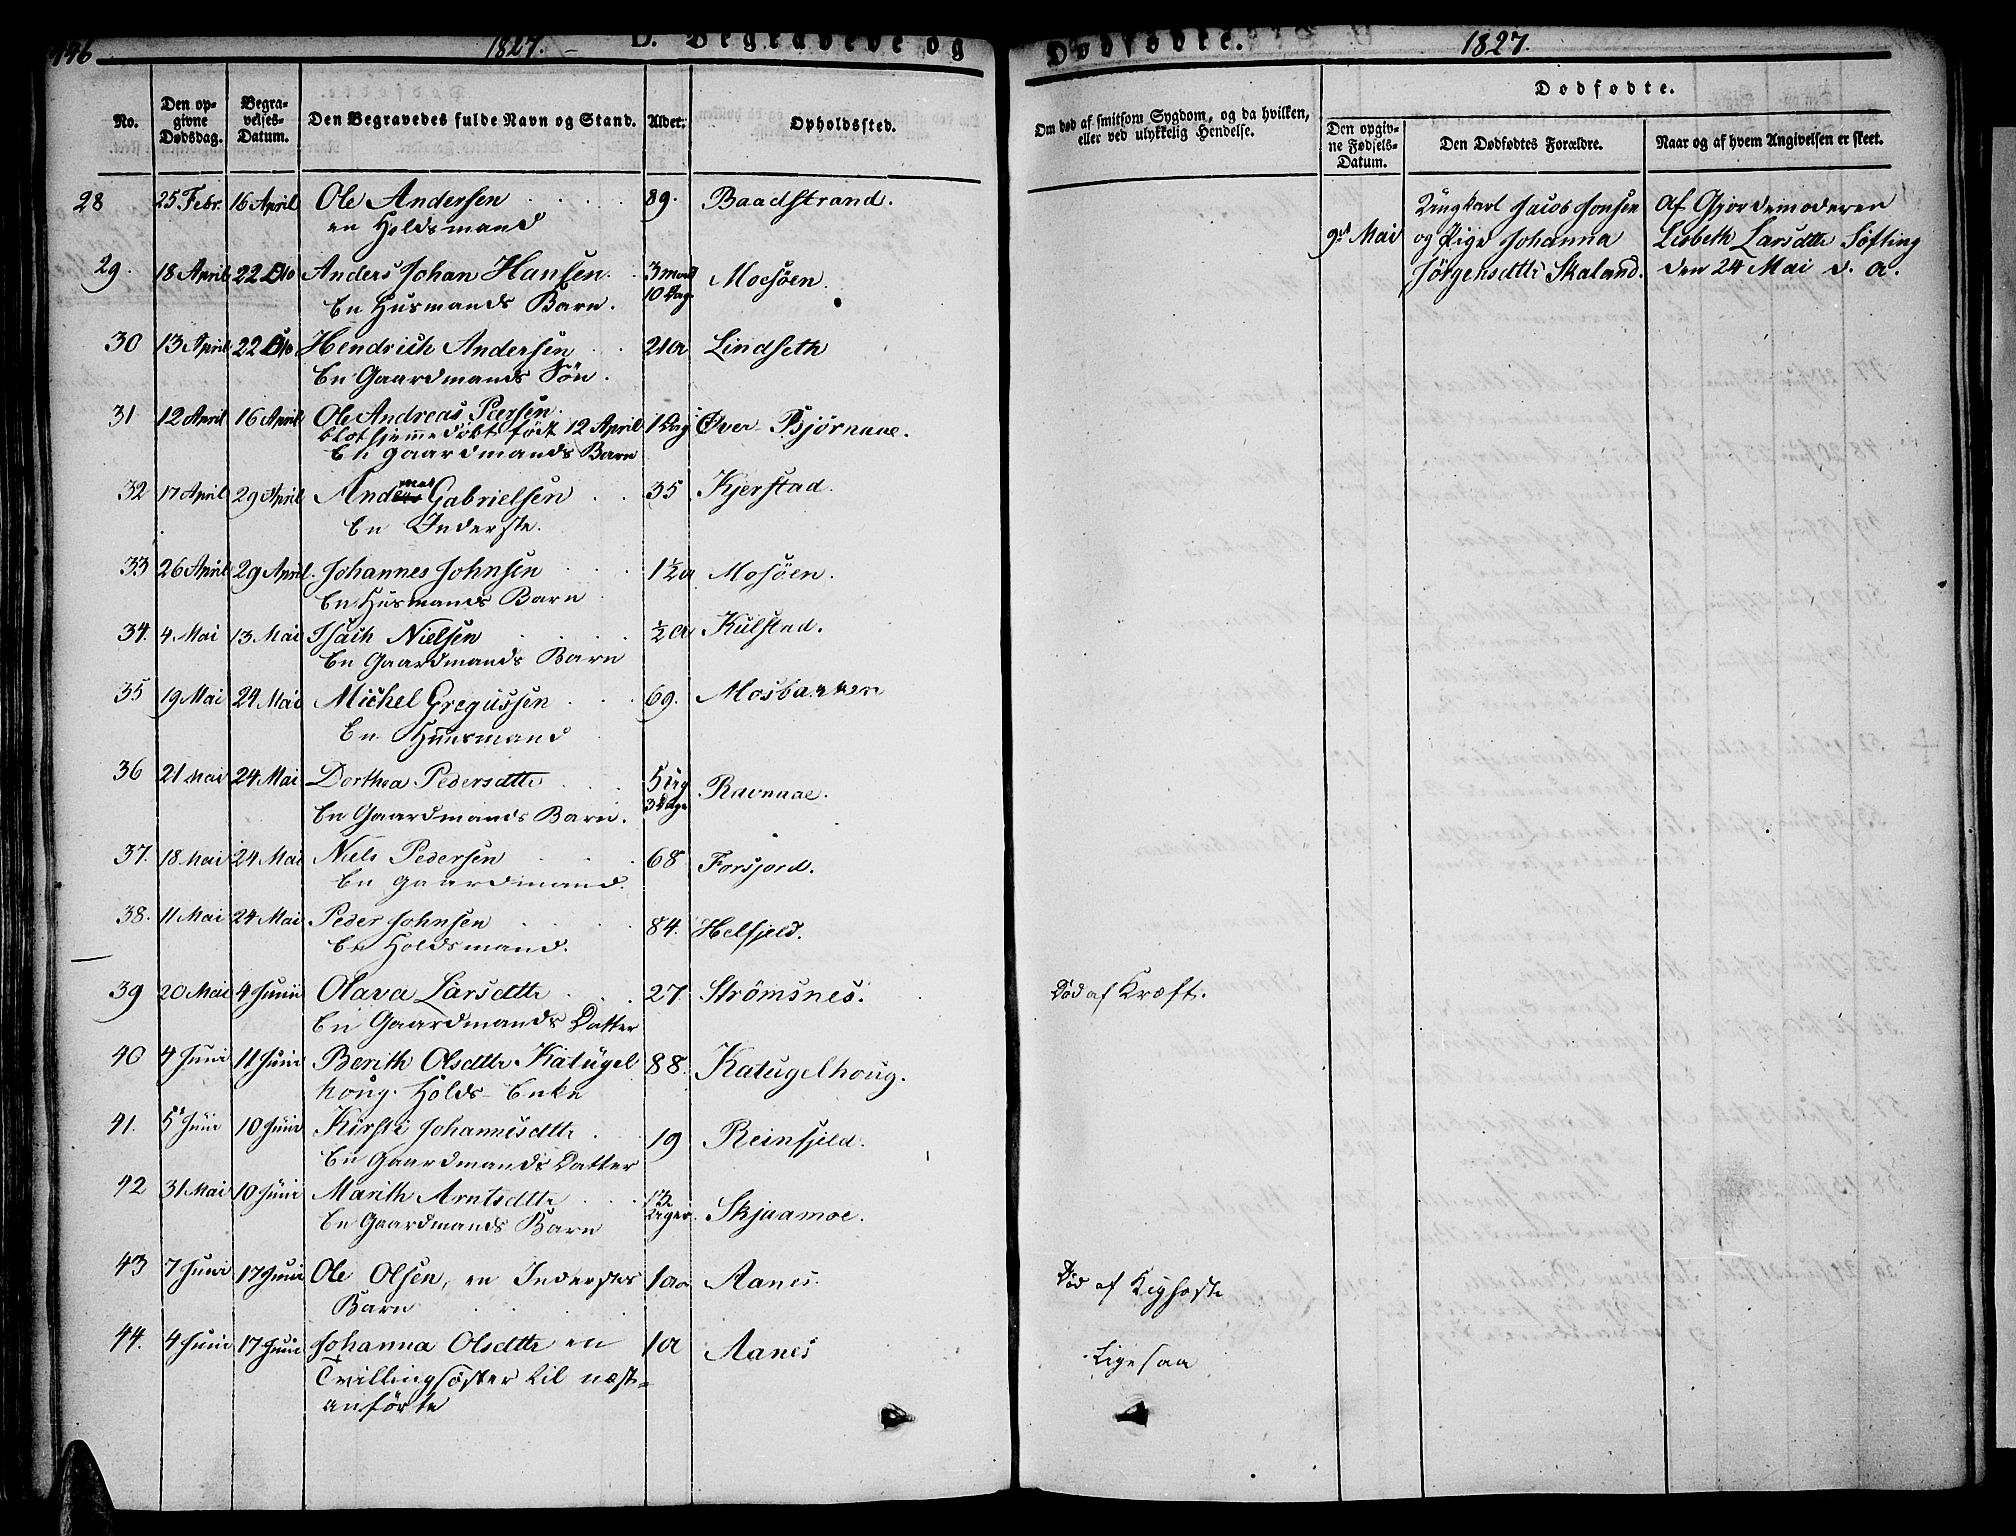 446
1827.
D. Begravede og
Dødfødte.
1827.
No.
Den opgivne Dødsdag.
Begravelses-Datum.
Den Begravedes fulde Navn og Stand.
Alder.
Opholdssted.
Om død af smitsom Sygdom, og da hvilken, eller ved ulykkelig Hendelse.
Dødfødte.
Den opgivne Fødsels-Datum.
Den Dødfødtes Forældre.
Naar og af hvem Angivelsen er skeet.
28 25 Febr. 16 April Ole Andersen 89. Baadstrand.
en Holdsmand
9de Mai
Ungkarl Jacob Jonsen
og Pige Johanna
Jørgensdttr Skaland.
Af Gjordemoderen
Lisbeth Larsdttr Søfting
den 24 Mai d. a.
29. 18 April 22 Dto Anders Johan Hansen. 3 mont 10 Dag Mosøen.
En Husmands Barn.
30 13 April 22 Dto Hendrich Andersen 21 a Lindseth
En Gaardmands Søn.
31 12 April 16 April Ole Andreas Peersen. 1 Dag Øver-Bjørnaae.
blot hjemmedøbt født 12 April
En gaardmands Barn
32 17 April 29 April Andreas Gabrielsen 35 Kjerstad.
En Inderste.
33 26 April 29 April. Johannes Johnsen 1½ a Mosøen.
En Husmands Barn
34. 4. Mai 13. Mai Isach Nielsen ½ a Kulstad.
En Gaardmands Barn
35 19 Mai 24 Mai Michel Gregussen 69. Mosbakken
En Huusmand
36 21 Mai 24 Mai Dorthea Pedersdttr 5 Uger 3 Dage Ravnaae.
En Gaardmands Barn.
37. 18. Mai 24 Mai Niels Pedersen 68 Forsjord.
En gaardmand.
38. 11 Mai 24 Mai Peder Johnsen 84. Helfjeld.
En Holdsmand.
39 20 Mai 4 Junii Olava Larsdttr 27 Strömsnes. Død af Kræft.
En Gaardmands Datter
40 4 Juni 11 Juni Berith Olsdttr Katugel 88. Katugelhoug.
houg. Holds-Enke
41. 5te Juni 10 Juni Kirsti Johannesdttr 19 Reinfjeld.
En Gaardmands Datter
42 31 Mai 10 Juni Marith Arntsdttr Dager. Skjaamoe.
En Gaardmands Barn
43 7 Juni 17 Juni Ole Olsen, en Inderstes 1 aar Aanes. Død af Kighoste
Barn
44. 4 Juni 17 Juni Johanna Olsdttr en 1 a Aanes Ligesaa
Tvillingsøster til næst-
anförte